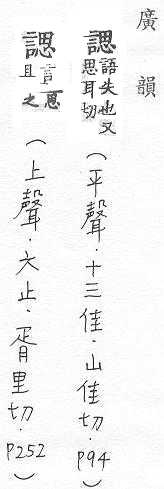 廣韻
諰語失也又思耳切(平聲．十三佳．山佳切．P94)
諰言且思之(上聲．六止．胥里切．P252)